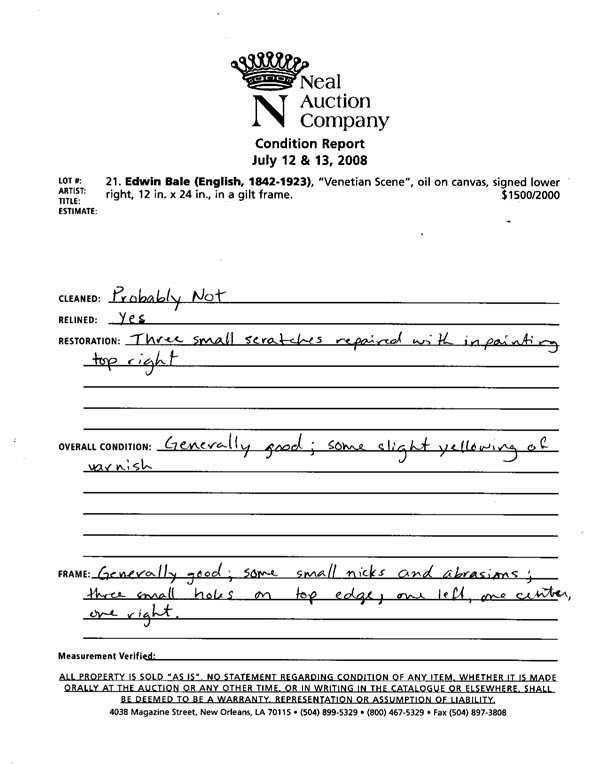 Neal
Auction
Company
N
Condition Report
July 12 & 13, 2008
LOT #: 21. Edwin Bale (English, 1842-1923), "Venetian Scene", oil on canvas, signed lower
ARTIST: right, 12 in. x 24 in., in a gilt frame. $1500/2000
TITLE:
ESTIMATE:
CLEANED: Probably Not
RELINED: Yes
RESTORATION: Three small scratches repaired with inpainting
top right
OVERALL CONDITION: Generally good; some slight yellowing of
varnish
FRAME: Generally good; some small nicks and abrasions;
three small holes on top edge, one left, one center,
one right.
Measurement Verified:
ALL PROPERTY IS SOLD "AS IS". NO STATEMENT REGARDING CONDITION OF ANY ITEM, WHETHER IT IS MADE
ORALLY AT THE AUCTION OR ANY OTHER TIME, OR IN WRITING IN THE CATALOGUE OR ELSEWHERE, SHALL
BE DEEMED TO BE A WARRANTY, REPRESENTATION OR ASSUMPTION OF LIABILITY.
4038 Magazine Street, New Orleans, LA 70115 • (504) 899-5329 • (800) 467-5329 • Fax (504) 897-3808